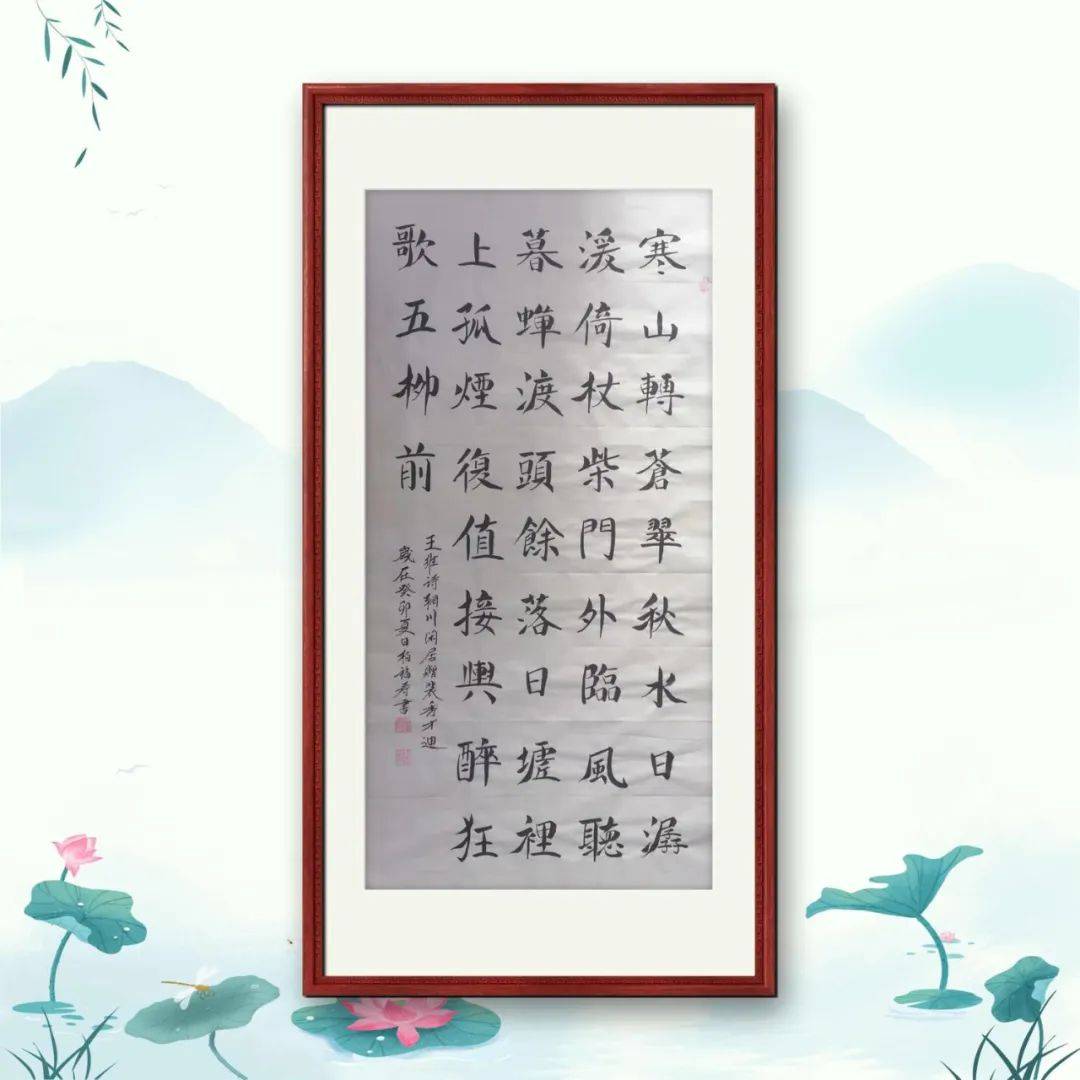 寒山轉蒼翠秋水日潺
湲倚杖柴門外臨風聽
暮蟬渡頭餘落日墟裡
上孤煙復值接輿醉狂
歌五柳前
王維诗輞川闲居贈裴秀才迪
歲在癸卯夏日福寿書